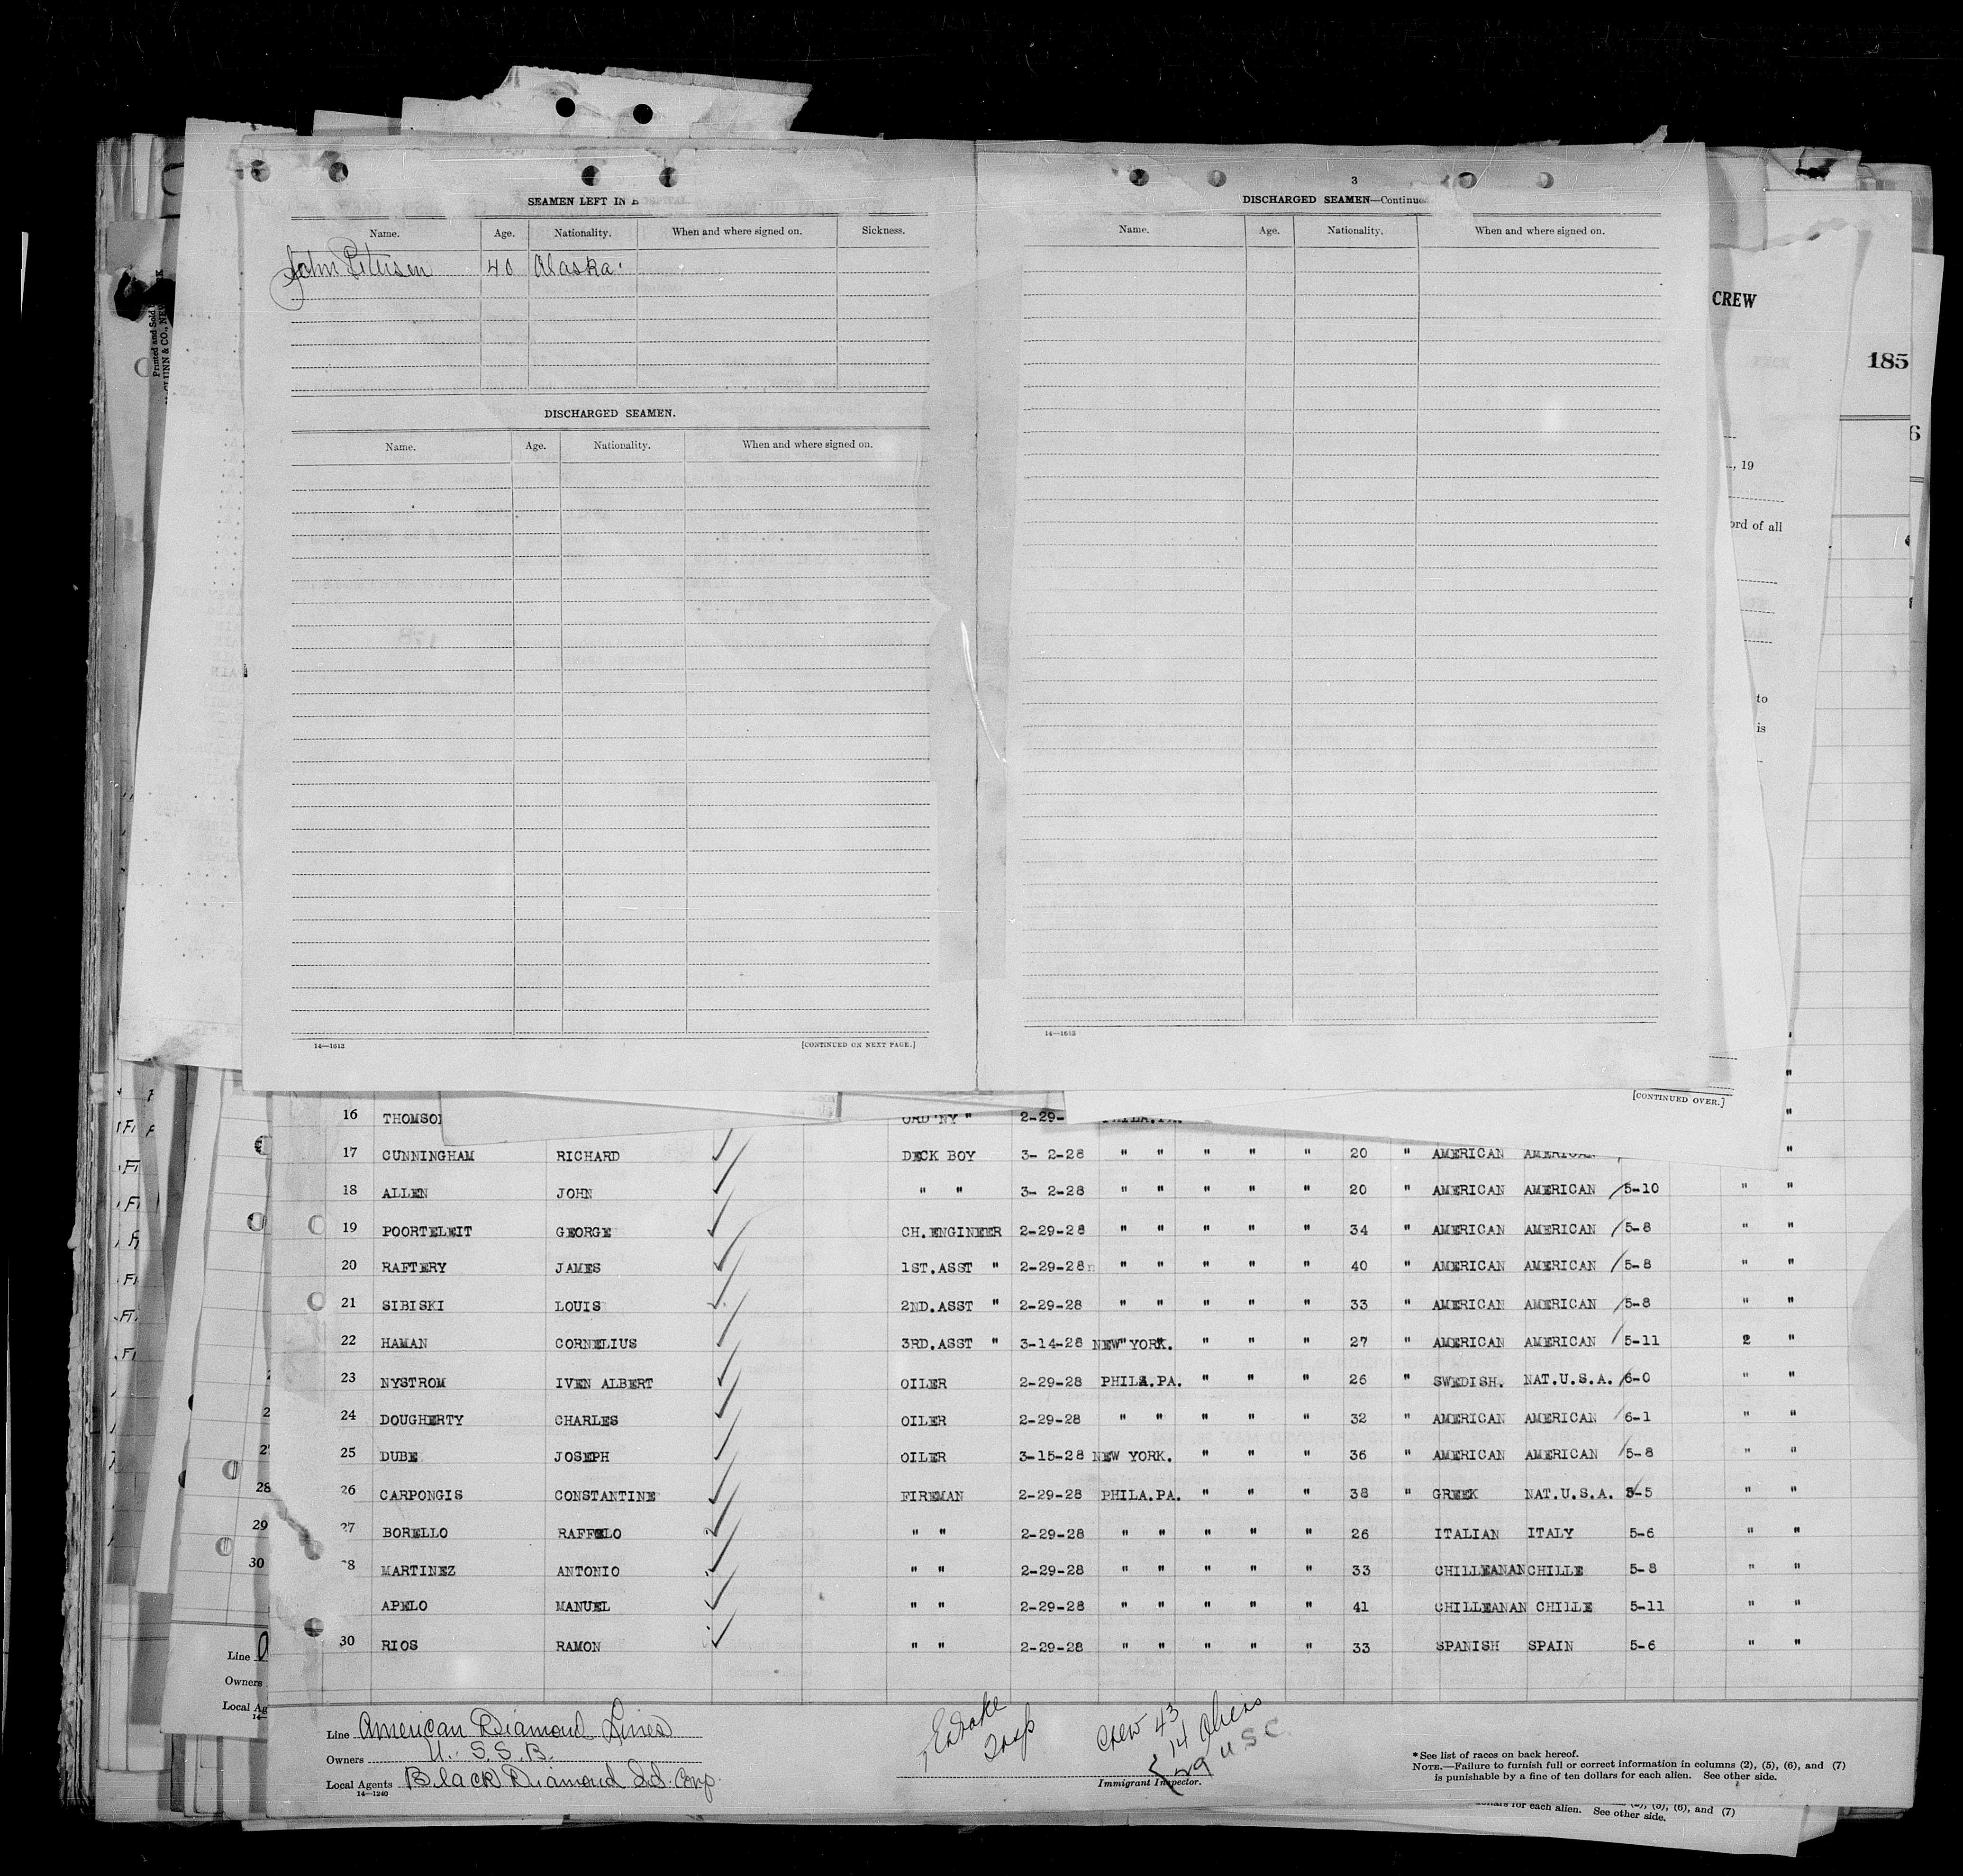 SEAMEN LEFT IN
Name. Age. Nationality. When and where signed on. Sickness.
John Petersen 40 Alaska.
DISCHARGED SEAMEN.
Name. Age. Nationality. When and where signed on.
14—1613 [CONTINUED ON NEXT PAGE.]
3
DISCHARGED SEAMEN—Continue
Name. Age. Nationality. When and where signed on.
14—1613
[CONTINUED OVER.]
CREW
185
6
, 19
ord of all
to
is
Printed and Sold
16 THOMSO ORD'NY " 2-29-
17 CUNNINGHAM RICHARD DECK BOY 3- 2-28 " " " " " 20 " AMERICAN AMERICAN "
18 ALLEN JOHN " " 3- 2-28 " " " " " 20 " AMERICAN AMERICAN 5-10 " "
19 POORTELEIT GEORGE CH.ENGINEER 2-29-28 " " " " " 34 " AMERICAN AMERICAN 5-8 " "
20 RAFTERY JAMES 1ST.ASST " 2-29-28 " " " " " 40 " AMERICAN AMERICAN 5-8 " "
21 SIBISKI LOUIS 2ND.ASST " 2-29-28 " " " " " 33 " AMERICAN AMERICAN 5-8 " "
22 HAMAN CORNELIUS 3RD.ASST " 3-14-28 NEW YORK. " " " 27 " AMERICAN AMERICAN 5-11 2 "
23 NYSTROM IVEN ALBERT OILER 2-29-28 PHILA.PA. " " " 26 " SWEDISH. NAT.U.S.A. 6-0 " "
24 DOUGHERTY CHARLES OILER 2-29-28 " " " " " 32 " AMERICAN AMERICAN 6-1 " "
25 DUBE JOSEPH OILER 3-15-28 NEW YORK. " " " 36 " AMERICAN AMERICAN 5-8 " "
26 CARPONGIS CONSTANTINE FIREMAN 2-29-28 PHILA.PA. " " " 38 " GREEK NAT.U.S.A. 5-5 " "
27 BORELLO RAFFELO " " 2-29-28 " " " " " 26 ITALIAN ITALY 5-6 " "
8 MARTINEZ ANTONIO " " 2-29-28 " " " " " 33 CHILLEANAN CHILLE 5-8 " "
APELO MANUEL " " 2-29-28 " " " " " 41 CHILLEANAN CHILLE 5-11 " "
30 RIOS RAMON " " 2-29-28 " " " " " 33 SPANISH SPAIN 5-6 " "
28
29
30
Line
Owners
Local Ag
Line American Diamond Lines
Owners U. S. S. B.
Local Agents Black Diamond S.S. Corp.
14—1240
Crew 43
14 Aliens
29 U S C.
Immigrant Inspector.
*See list of races on back hereof.
NOTE.—Failure to furnish full or correct information in columns (2), (5), (6), and (7)
is punishable by a fine of ten dollars for each alien. See other side.
(5), (6), and (7)
for each alien. See other side.